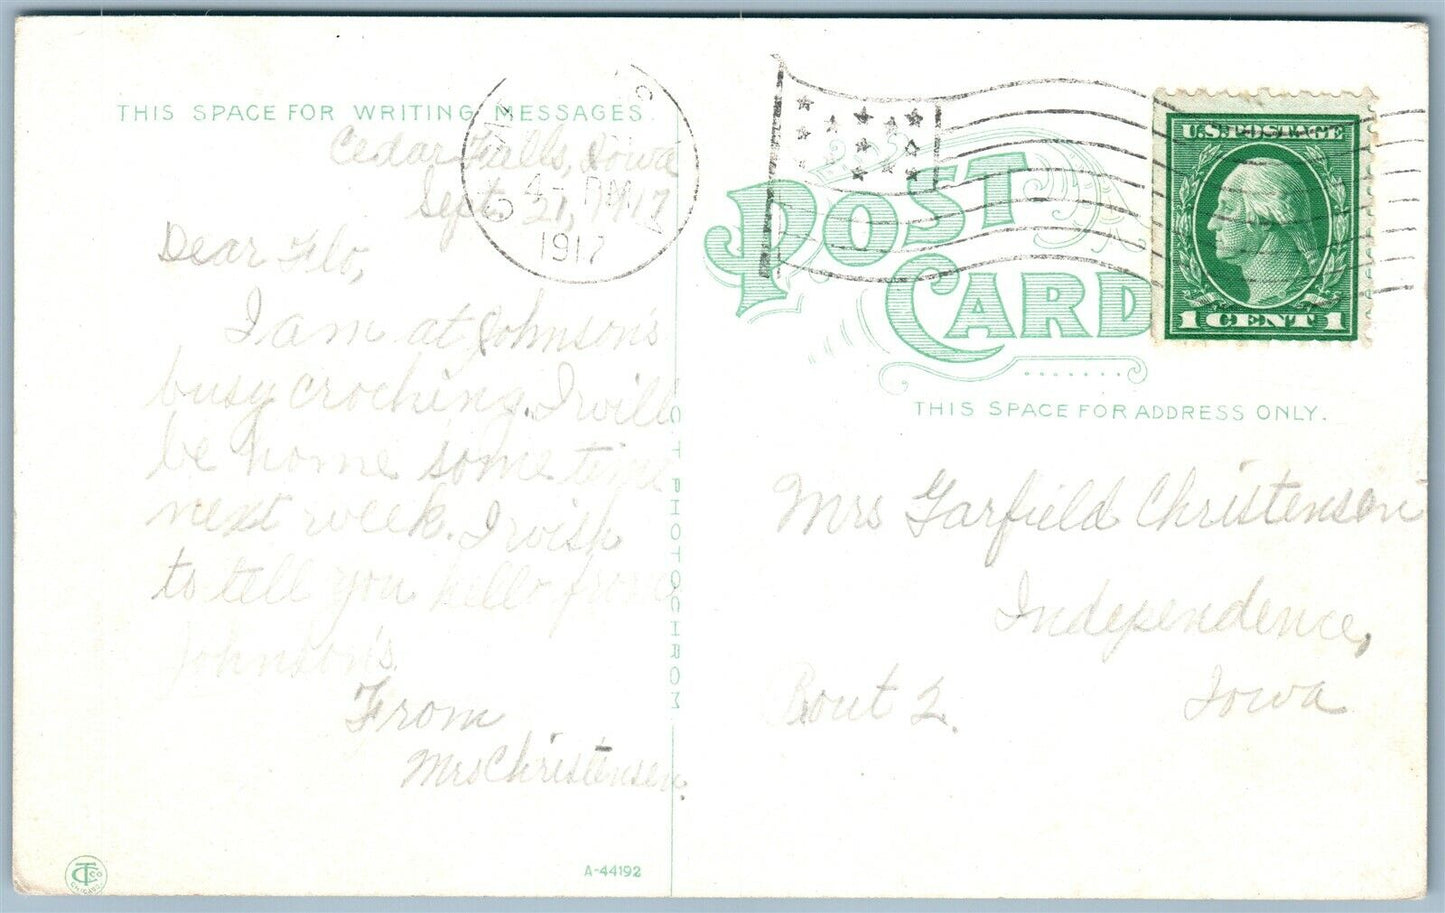 THIS SPACE FOR WRITING MESSAGES.
Cedar Falls, Iowa
Sept. 21, 1917
4- PM
1917
Dear Flo,
I am at Johnson's
busy croching. I will
be home some time
next week. I wish
to tell you hello from
Johnson's.
From
Mrs Christensen.
C.T. PHOTOCHROM
A-44192
CHICAGO
POST
CARD
U.S. POSTAGE
1 CENT 1
THIS SPACE FOR ADDRESS ONLY.
Mrs Garfield Christensen
Independence,
Rout 2. Iowa